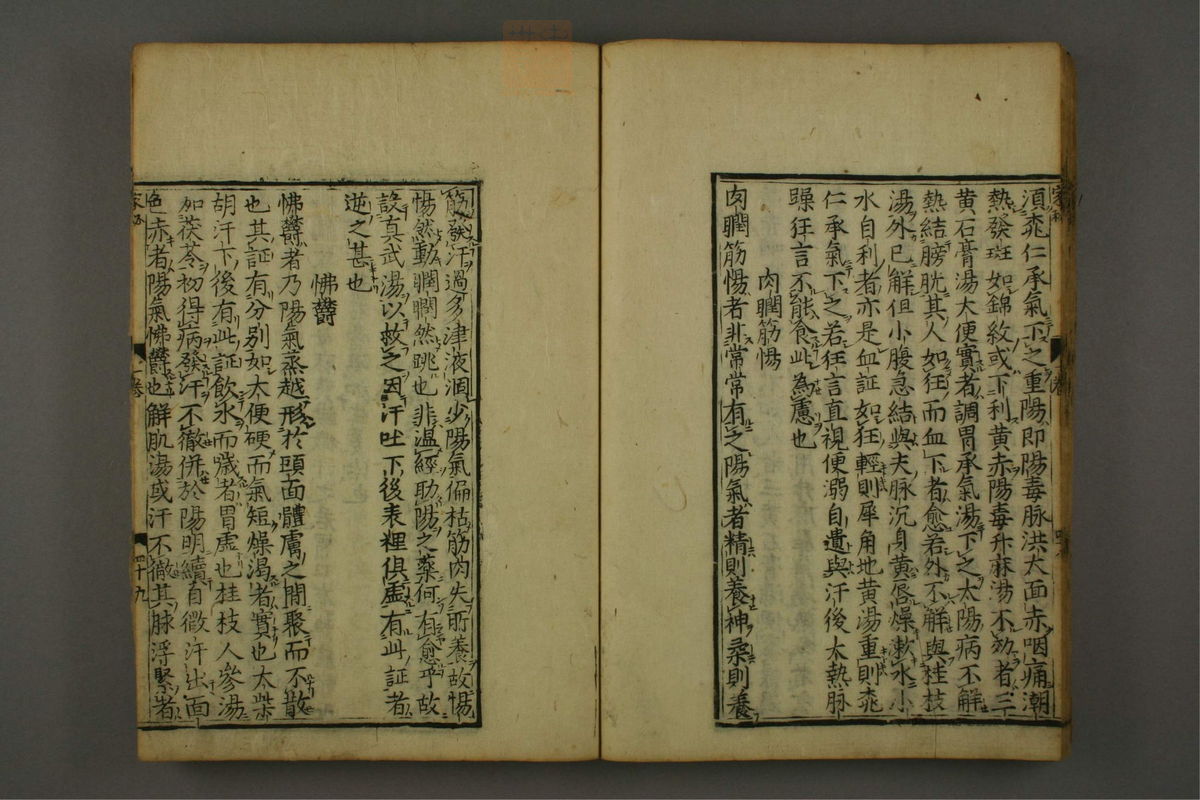 須桃仁承氣下之重陽即陽毒脉洪大面赤咽痛潮
熱發斑如錦紋或下利黄赤陽毒升麻湯不効者三
黄石膏湯大便實者調胃承氣湯下之太陽病不解
熱結膀胱其人如狂而血下者愈若外不解與桂枝
湯外已解但小腹急結與夫脉沉身黄唇燥漱水小
水自利者亦是血証如狂輕則犀角地黄湯重則桃
仁承氣下之若狂言直視便溺自遺與汗後大熱脉
躁狂言不能食此為慮也
肉瞤筋惕
肉瞤筋惕者非常常有之陽氣者精則養神柔則養
筋發汗過多津液涸少陽氣偏枯筋肉失所養故惕
惕然動瞤瞤然跳也非温經助陽之藥何有愈乎故
設真武湯以救之因汗吐下後表裡俱虚有此証者
逆之甚也
怫欝
怫欝者乃陽氣蒸越形於頭面體膚之間聚而不散
也其証有分别如大便硬而氣短燥渴者實也大柴
胡汗下後有此証飲水而噦者胃虚也桂枝人參湯
加茯苓初得病發汗不徹併於陽明續自微汗出面
色赤者陽氣怫欝也解肌湯或汗不徹其脉浮緊者
四十九